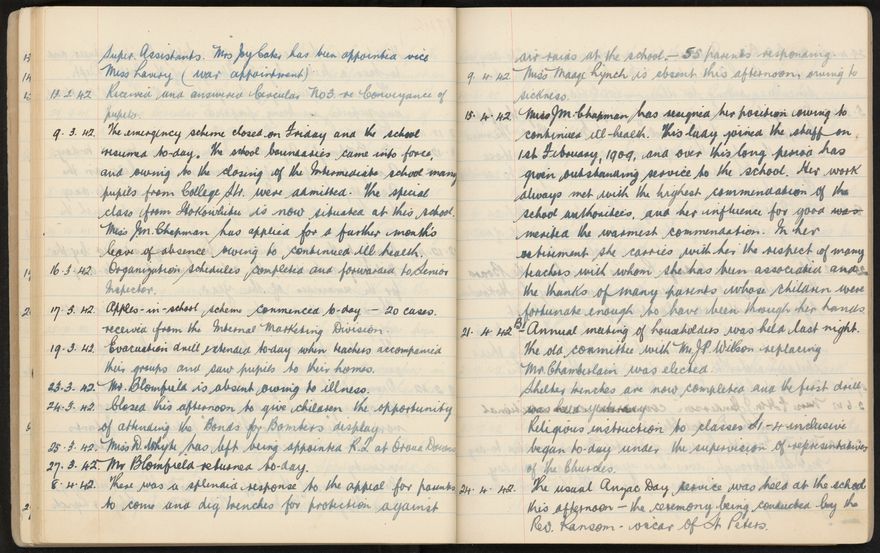 Super. Assistants. Mrs Joy Cates has been appointed vice
Miss Lavery (war appointment)
13.2.42 Received and answered Circular No3 re Conveyance of
pupils.
9.3.42. The emergency scheme closed on Friday and the school
resumed to-day. The school boundaries came into force,
and owing to the closing of the Intermediate school many
pupils from College Str. were admitted. The special
class from Hokowhitu is now situated at this school.
Miss J.M. Chapman has applied for a further month's
leave of absence owing to continued ill health.
16.3.42. Organization schedules completed and forwarded to Senior
Inspector.
17.3.42. Apples-in-school scheme commenced to-day – 20 cases.
received from the Internal Marketing Division.
19.3.42. Evacuation drill extended to-day when teachers accompanied
their groups and saw pupils to their homes.
23.3.42. Mr. Blomfield is absent owing to illness.
24.3.42. Closed this afternoon to give children the opportunity
of attending the "Bonds for Bombers" display.
25.3.42. Miss D. Whyte, has left being appointed R.A. at Crown Downs
27.3.42. Mr Blomfield returned to-day.
8.4.42. There was a splendid response to the appeal for parents
to come and dig trenches for protection against
air raids at the school – 55 parents responding.
9.4.42 Miss Maage Lynch is absent this afternoon, owing to
sickness.
15.4.42 Miss J.M. Chapman, has resigned her position owing to
continued ill-health. This lady joined the staff on
1st February, 1909, and over this long period has
given outstanding service to the school. Her work
always met with the highest commendation of the
school authorities, and her influence for good was
merited the warmest commendation. In her
retirement she carries with her the respect of many
teachers with whom she has been associated and
the thanks of many parents whose children were
fortunate enough to have been through her hands.
21.4.42 Bi-Annual meeting of householders was held last night.
The old committee with Mr J.P. Wilson replacing
Mr Chamberlain was elected.
Shelter trenches are now completed and the first drill
was held yesterday
Religious instruction to classes 1-4 inclusive
began to-day under the supervision of representatives
of the Churches.
24.4.42. The usual Anzac Day service was held at the school
this afternoon – the ceremony being conducted by the
Rev. Ransom – vicar of St Peters.